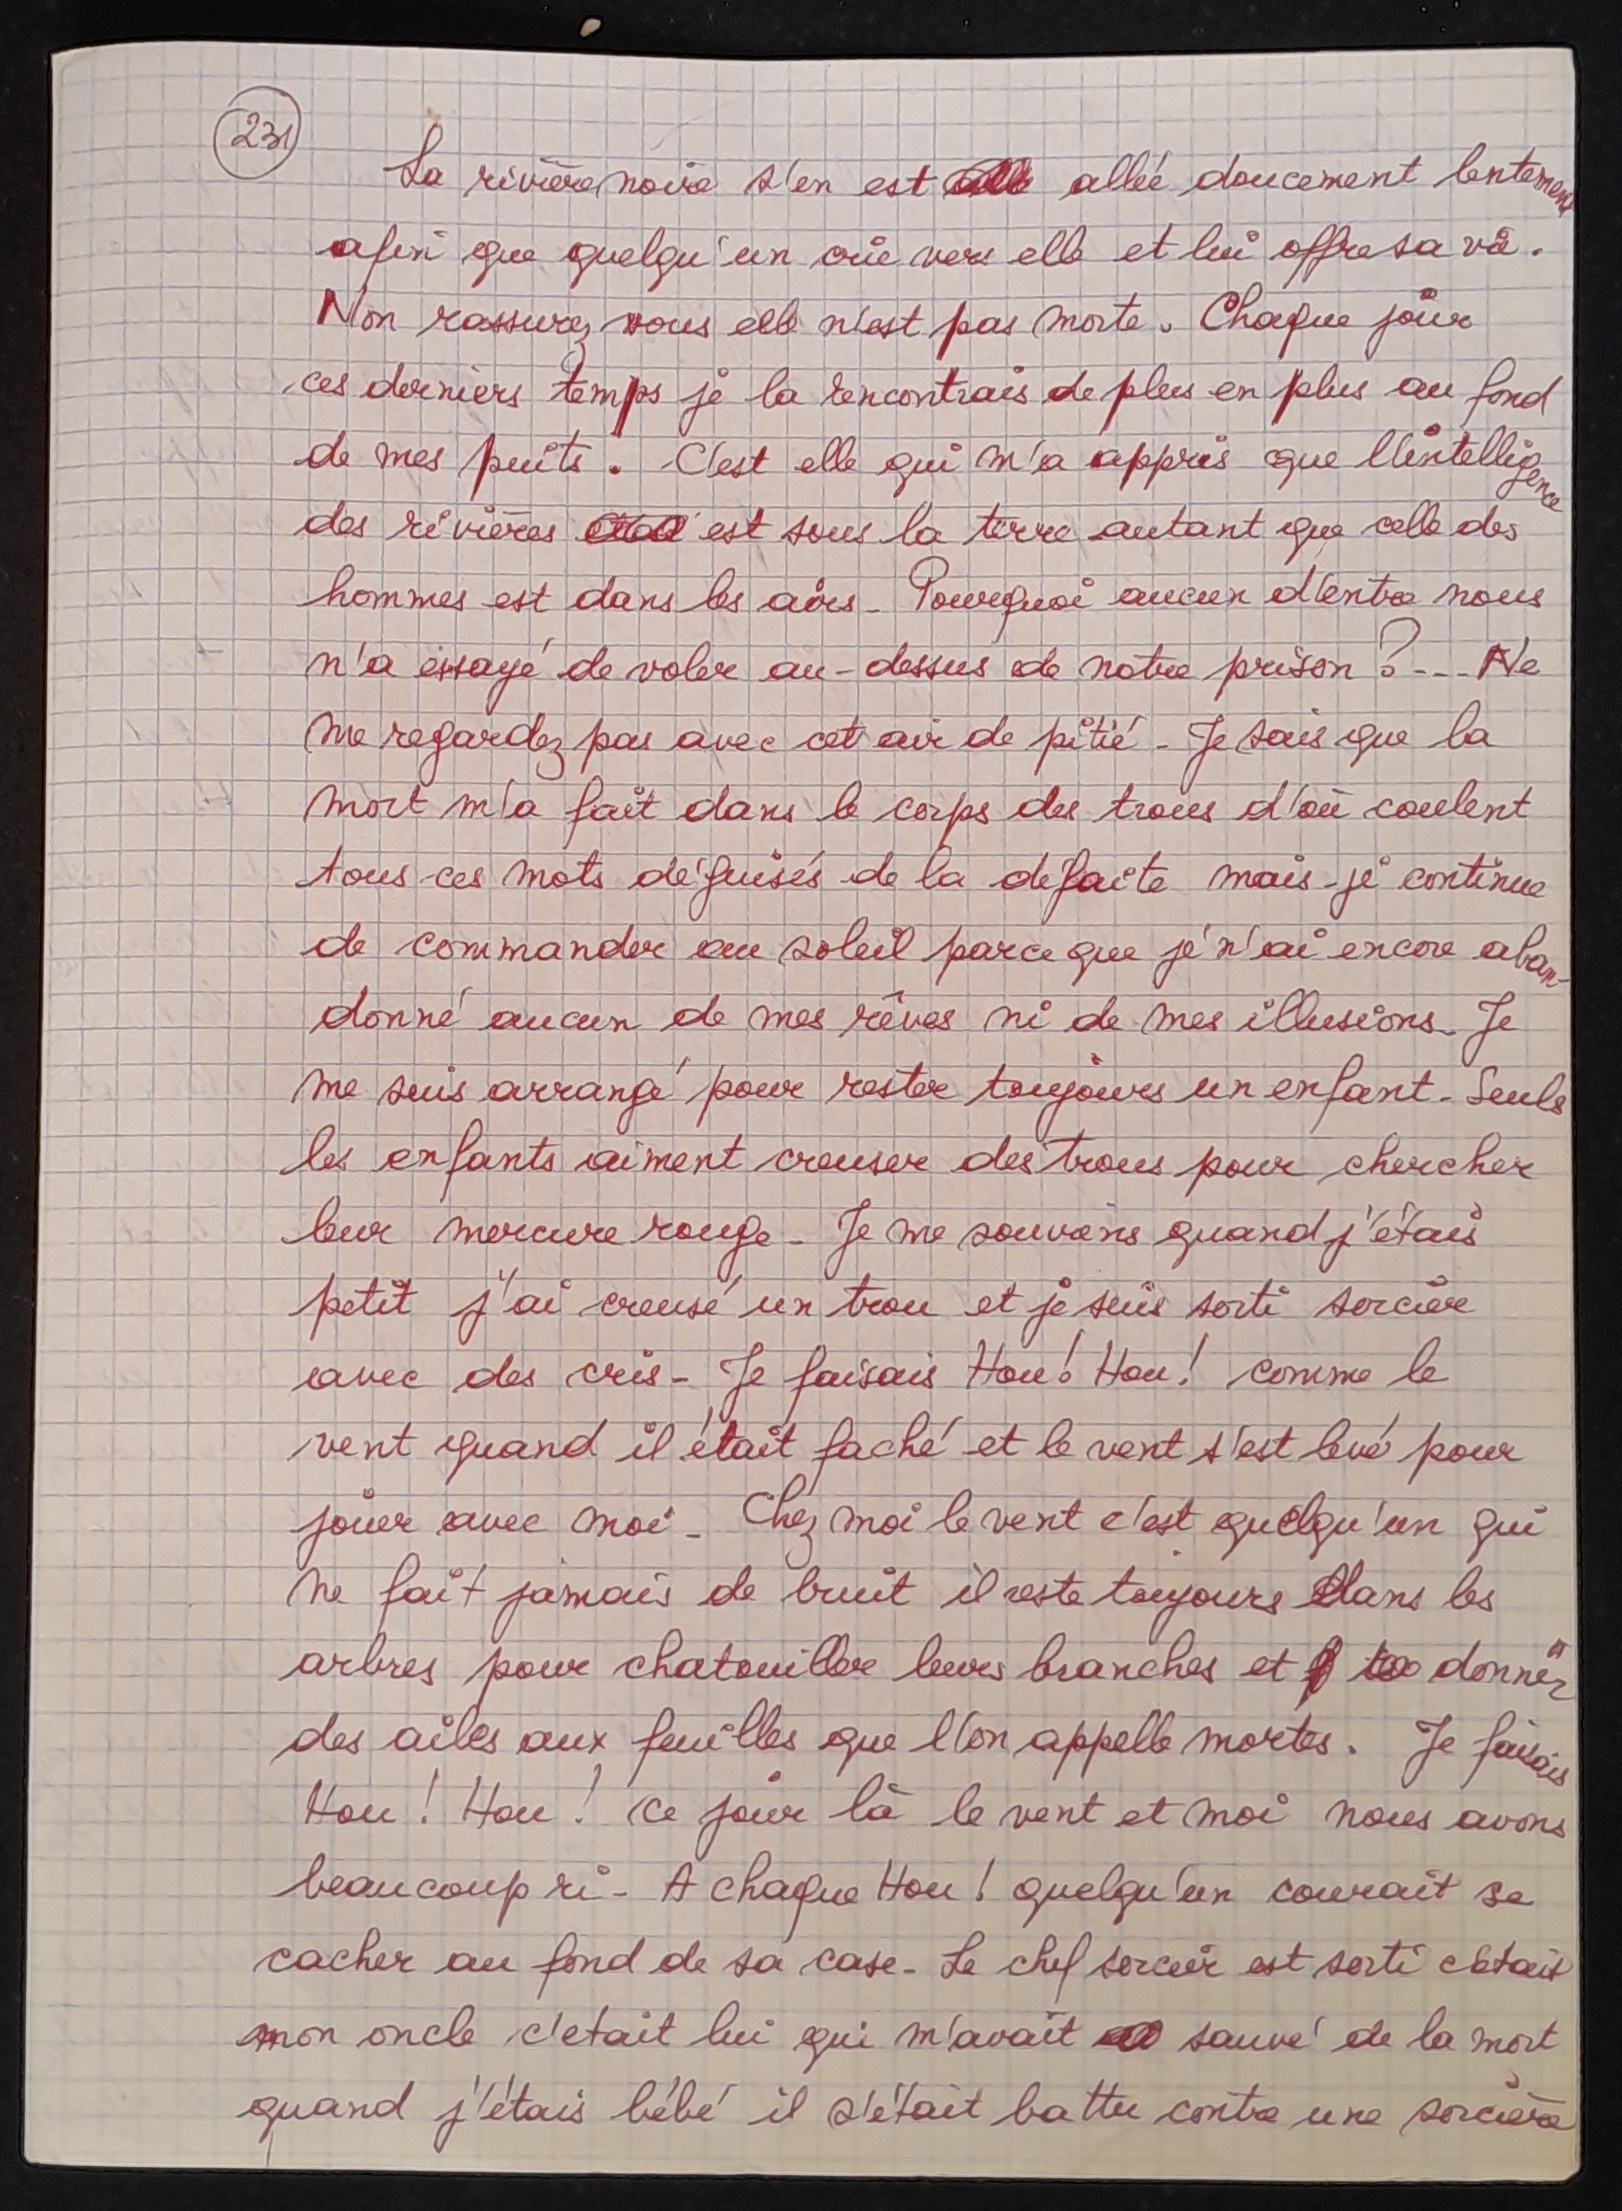 231
La rivière noire s'en est allée doucement lentement
afin que quelqu'un crie vers elle et lui offre sa vie.
Non rassurez vous elle n'est pas morte. Chaque jour
ces derniers temps je la rencontrais de plus en plus au fond
de mes puits. C'est elle qui m'a appris que l'intelligence
des rivières est sous la terre autant que celle des
hommes est dans les airs - Pourquoi aucun d'entre nous
n'a essayé de voler au-dessus de notre prison ?... Ne
me regardez pas avec cet air de pitié - Je sais que la
mort m'a fait dans le corps des trous d'où coulent
tous ces mots déguisés de la défaite mais je continue
de commander au soleil parce que je n'ai encore aban-
donné aucun de mes rêves ni de mes illusions - Je
me suis arrangé pour rester toujours un enfant - Seuls
les enfants aiment creuser des trous pour chercher
leur mercure rouge - Je me souviens quand j'étais
petit j'ai creusé un trou et je suis sorti sorcier
avec des cris - Je faisais Hou! Hou! comme le
vent quand il était faché et le vent s'est levé pour
jouer avec moi - Chez moi le vent c'est quelqu'un qui
ne fait jamais de bruit il reste toujours dans les
arbres pour chatouiller leurs branches et donner
des ailes aux feuilles que l'on appelle mortes. Je faisais
Hou ! Hou ! Ce jour là le vent et moi nous avons
beaucoup ri - A chaque Hou ! quelqu'un courait se
cacher au fond de sa case - Le chef sorcier est sorti c'était
mon oncle c'etait lui qui m'avait sauvé de la mort
quand j'étais bébé il s'était battu contre une sorcière